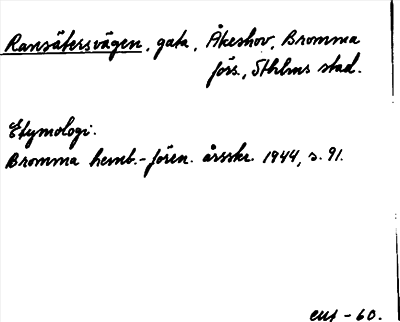 Ransätersvägen, gata, Åkeshov, Bromma
förs., Sthlms stad.
Etymologi.
Bromma hemb.-fören. årsskr. 1944, s. 91.
-60.